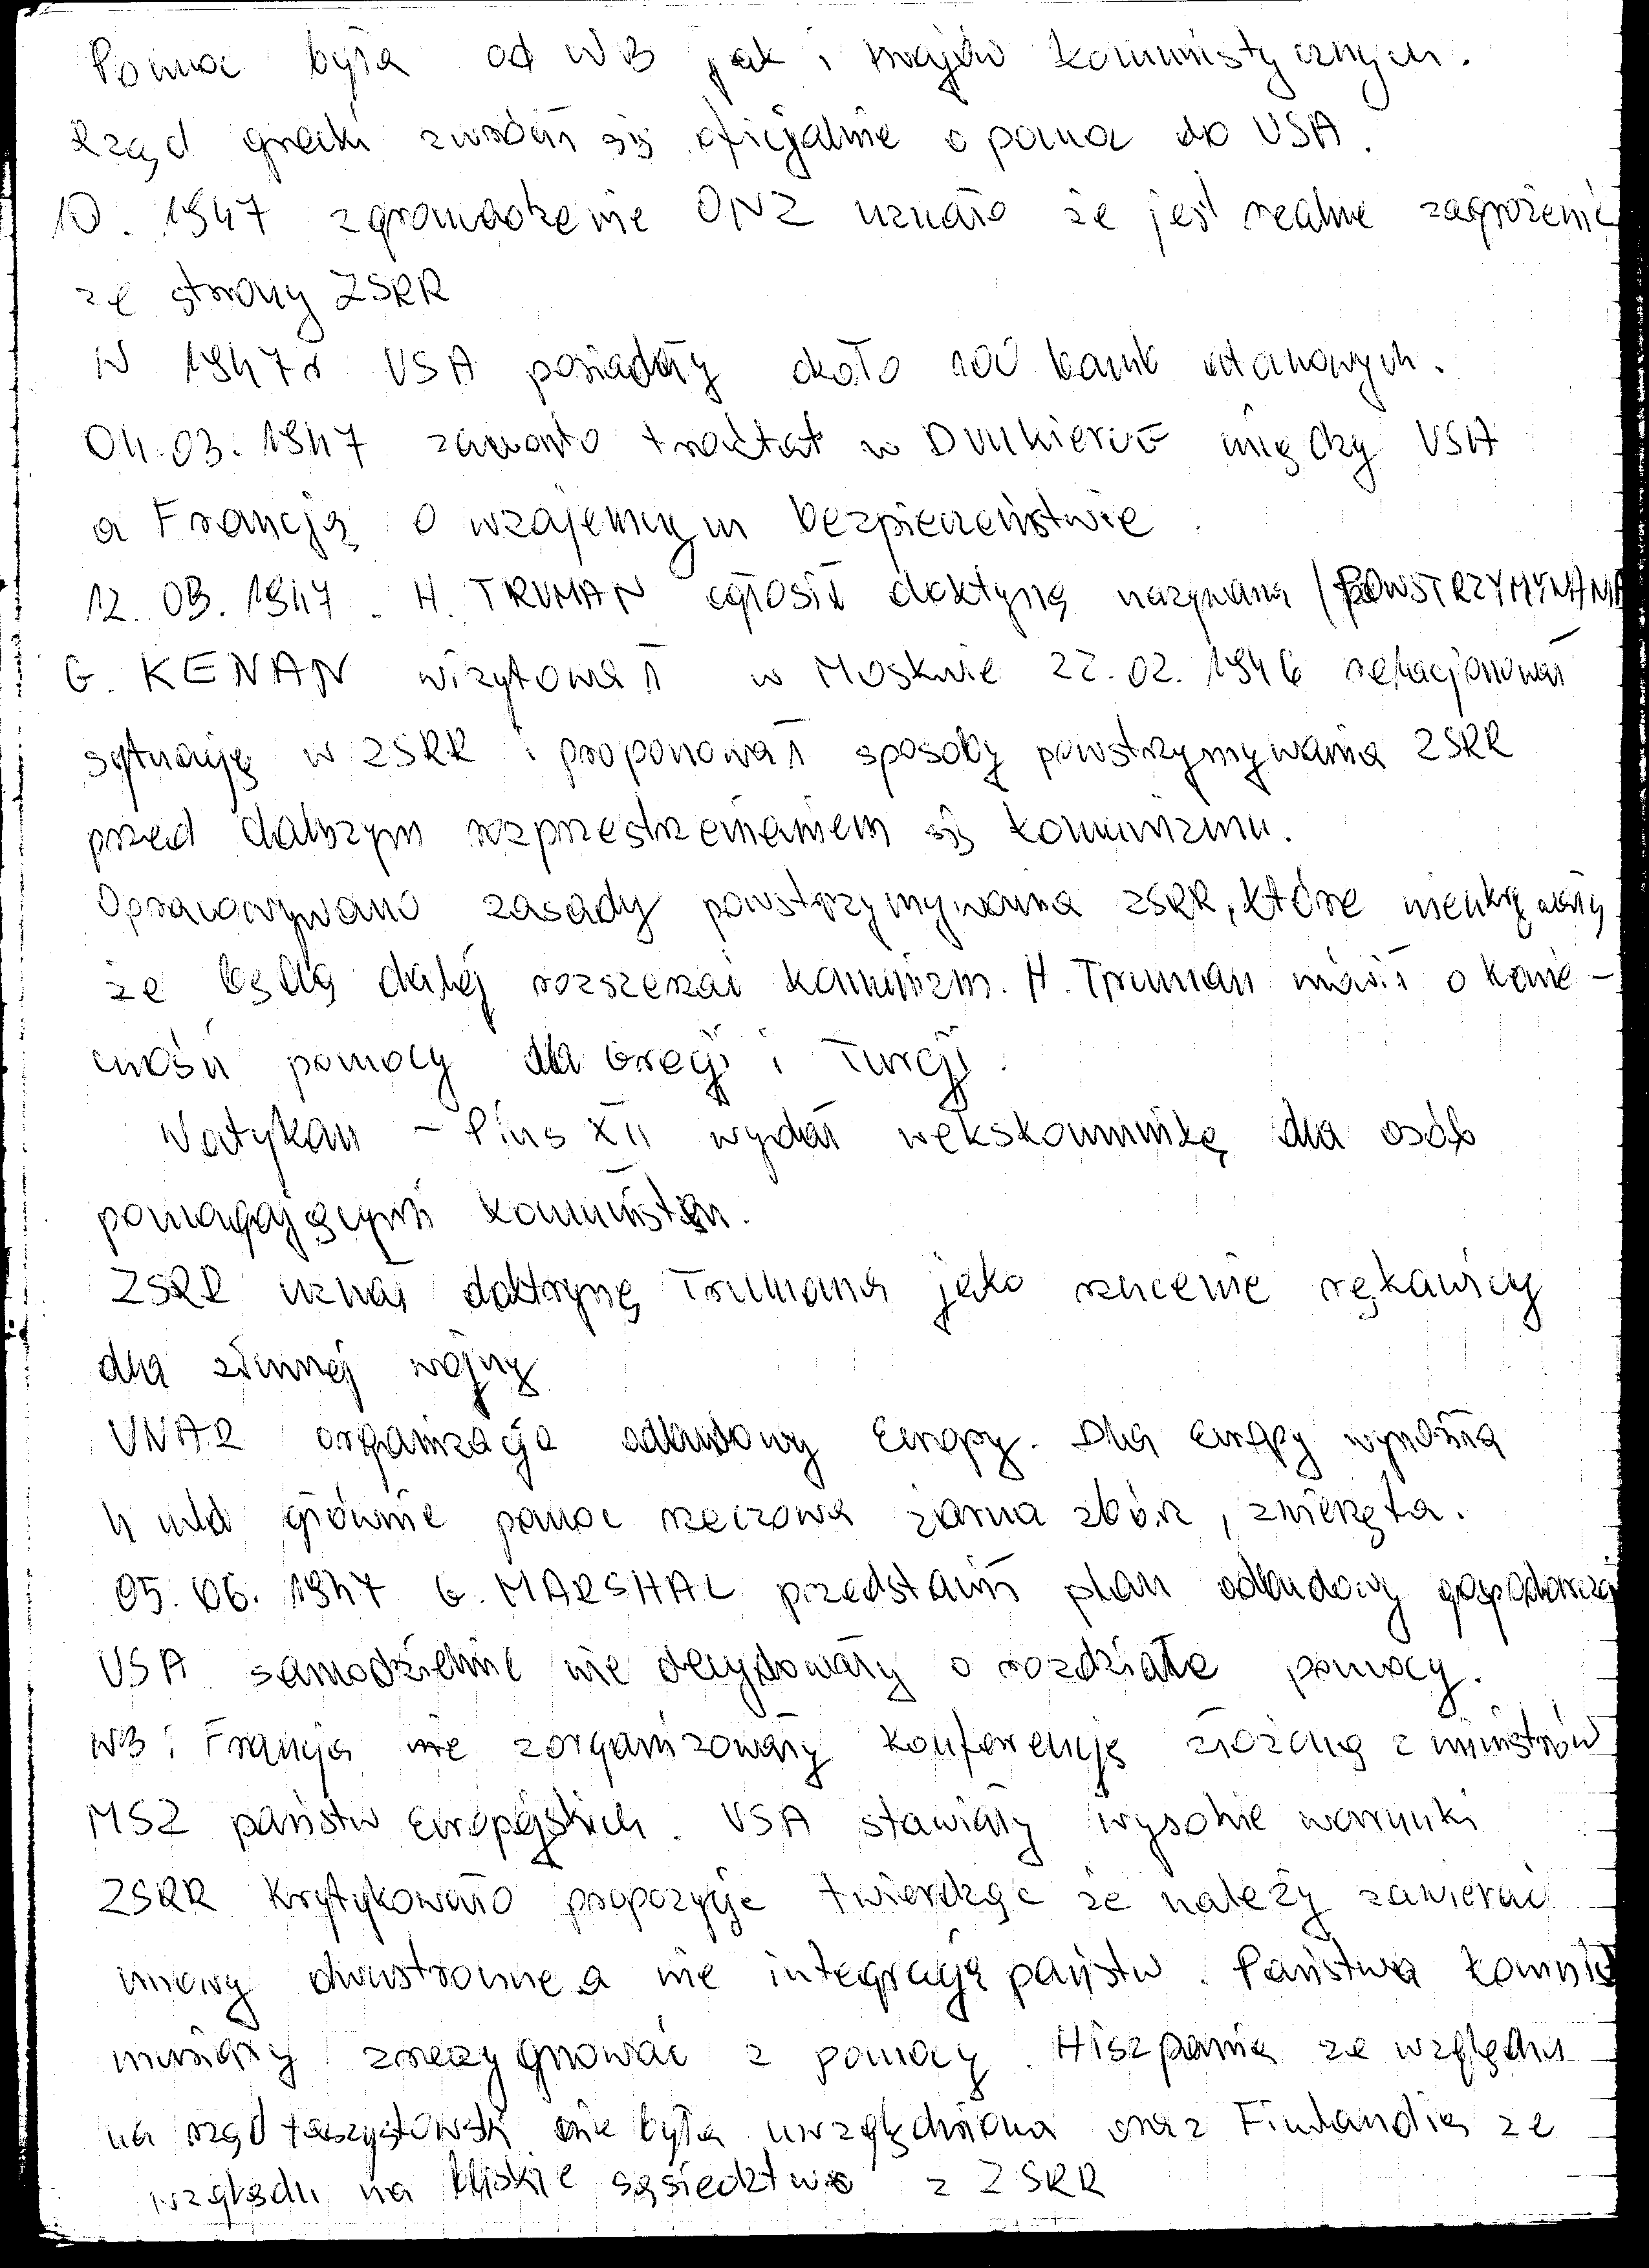 Pomoc była od WB jak i krajów komunistycznych.
Rząd grecki zwrócił się oficjalnie o pomoc do USA.
10. 1947 zgromadzenie ONZ uznało że jest realne zagrożenie
ze strony ZSRR
W 1947r USA posiadały około 100 bomb atomowych.
04.03.1947 zawarto traktat w Dunkierce między USA
a Francją o wzajemnym bezpieczeństwie
12.03.1947. H. TRUMAN ogłosił doktynę nazywaną (POWSTRZYMYWANIA
G. KENAN wizytował w Moskwie 22.02.1946 relacjonował
sytuację w ZSRR i proponował sposoby powstrzymywania ZSRR
przed dalszym rozprzestrzenianiem się komunizmu.
Opracowywano zasady powstrzymywania ZSRR, które nieukrywały
że będą dalej rozszerzać komunizm. H. Truman mówił o konie-
czności pomocy dla Grecji i Turcji.
Watykan - Pius XII wydał wekskomunikę dla osób
pomagających komunistom.
ZSRR uznał doktrynę Trumana jako rzucenie rękawicy
dla zimnej wojny
UNRR organizacja odbudowy Europy. Dla Europy wynosiła
4 mld głównie pomoc rzeczowa ziarna zbóż, zwierzęta.
05.06.1947 G. MARSHAL przedstawił plan odbudowy gospodarczej
USA samodzielnie nie decydowały o rozdziale pomocy.
WB i Francja nie zorganizowały konferencję złożoną z ministrów
MSZ państw Europejskich. USA stawiały wysokie warunki
ZSRR krytykowało propozycje twierdząc że należy zawierać
umowy dwustronne a nie integrację państw. Państwa komunis
musiały zrezygnować z pomocy. Hiszpania ze względu
na rząd faszystowski nie była uwzględniona oraz Finlandia ze
względu na bliskie sąsiedztwo z ZSRR